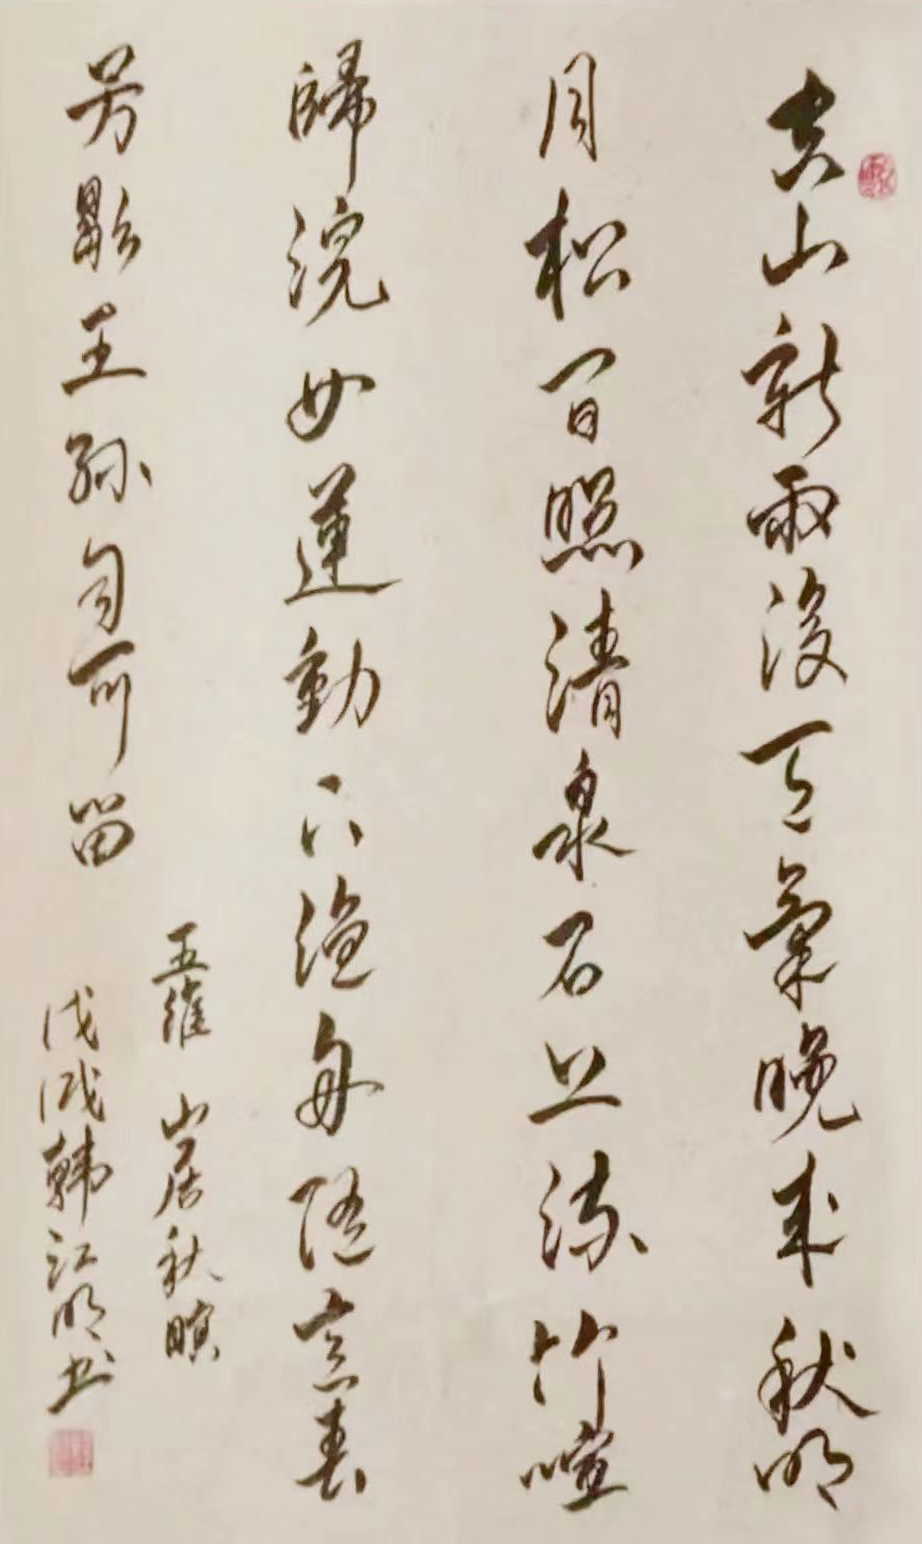 空山新雨後天氣晚来秋明
月松間照清泉石上流竹喧
歸浣女蓮動下漁舟随意春
芳歇王孫自可留
王維 山居秋暝
戊戌韩江明书